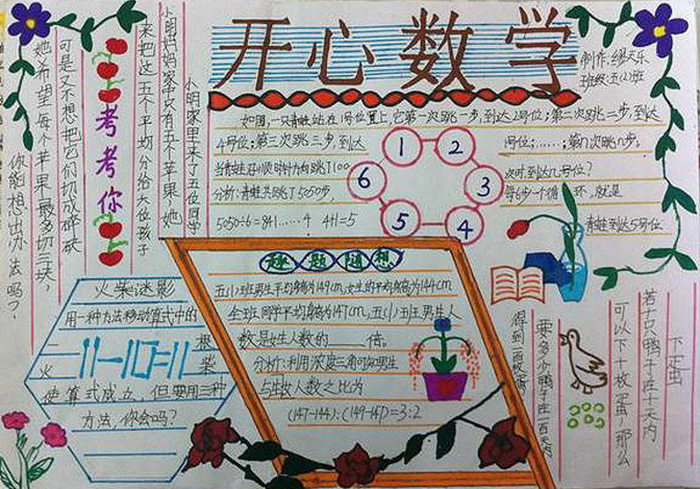 开心数学
制作:缪天乐
班级:五(2)班
如图,一只青蛙站在1号位置上,它第一次跳一步,到达2号位;第二次跳二步,到达
4号位;第三次跳三步,到达
1号位;……;第n次跳n步。
当青蛙沿顺时针方向跳了100
次时到达几号位?
分析:青蛙共跳了5050步,
每6步一个循环,就是
5050÷6=841……4 4+1=5
青蛙到达5号位
1
2
3
4
5
6
考考你
小明家里来了五位同学
小明妈妈家中只有五个苹果,她
来把这五个平均分给六位孩子
可是又不想把它们切成碎
她希望每个苹果最多切三块,
你能想出办法吗?
火柴谜影
用一种方法移动算式中的一根
火柴
11-10=11
使算式成立,但要用三种
方法,你会吗?
趣题随想
五(1)班男生平均身高为149cm,女生的平均身高为144cm
全班同学平均身高为147cm,五(1)班男生人
数是女生人数的____倍。
分析:利用浓度三角可知男生
与女生人数之比为
(147-144):(149-147)=3:2
下蛋
若十只鸭子在十天内
可以下十枚蛋,那么
要多少鸭子在一百天内
得到一百枚蛋?